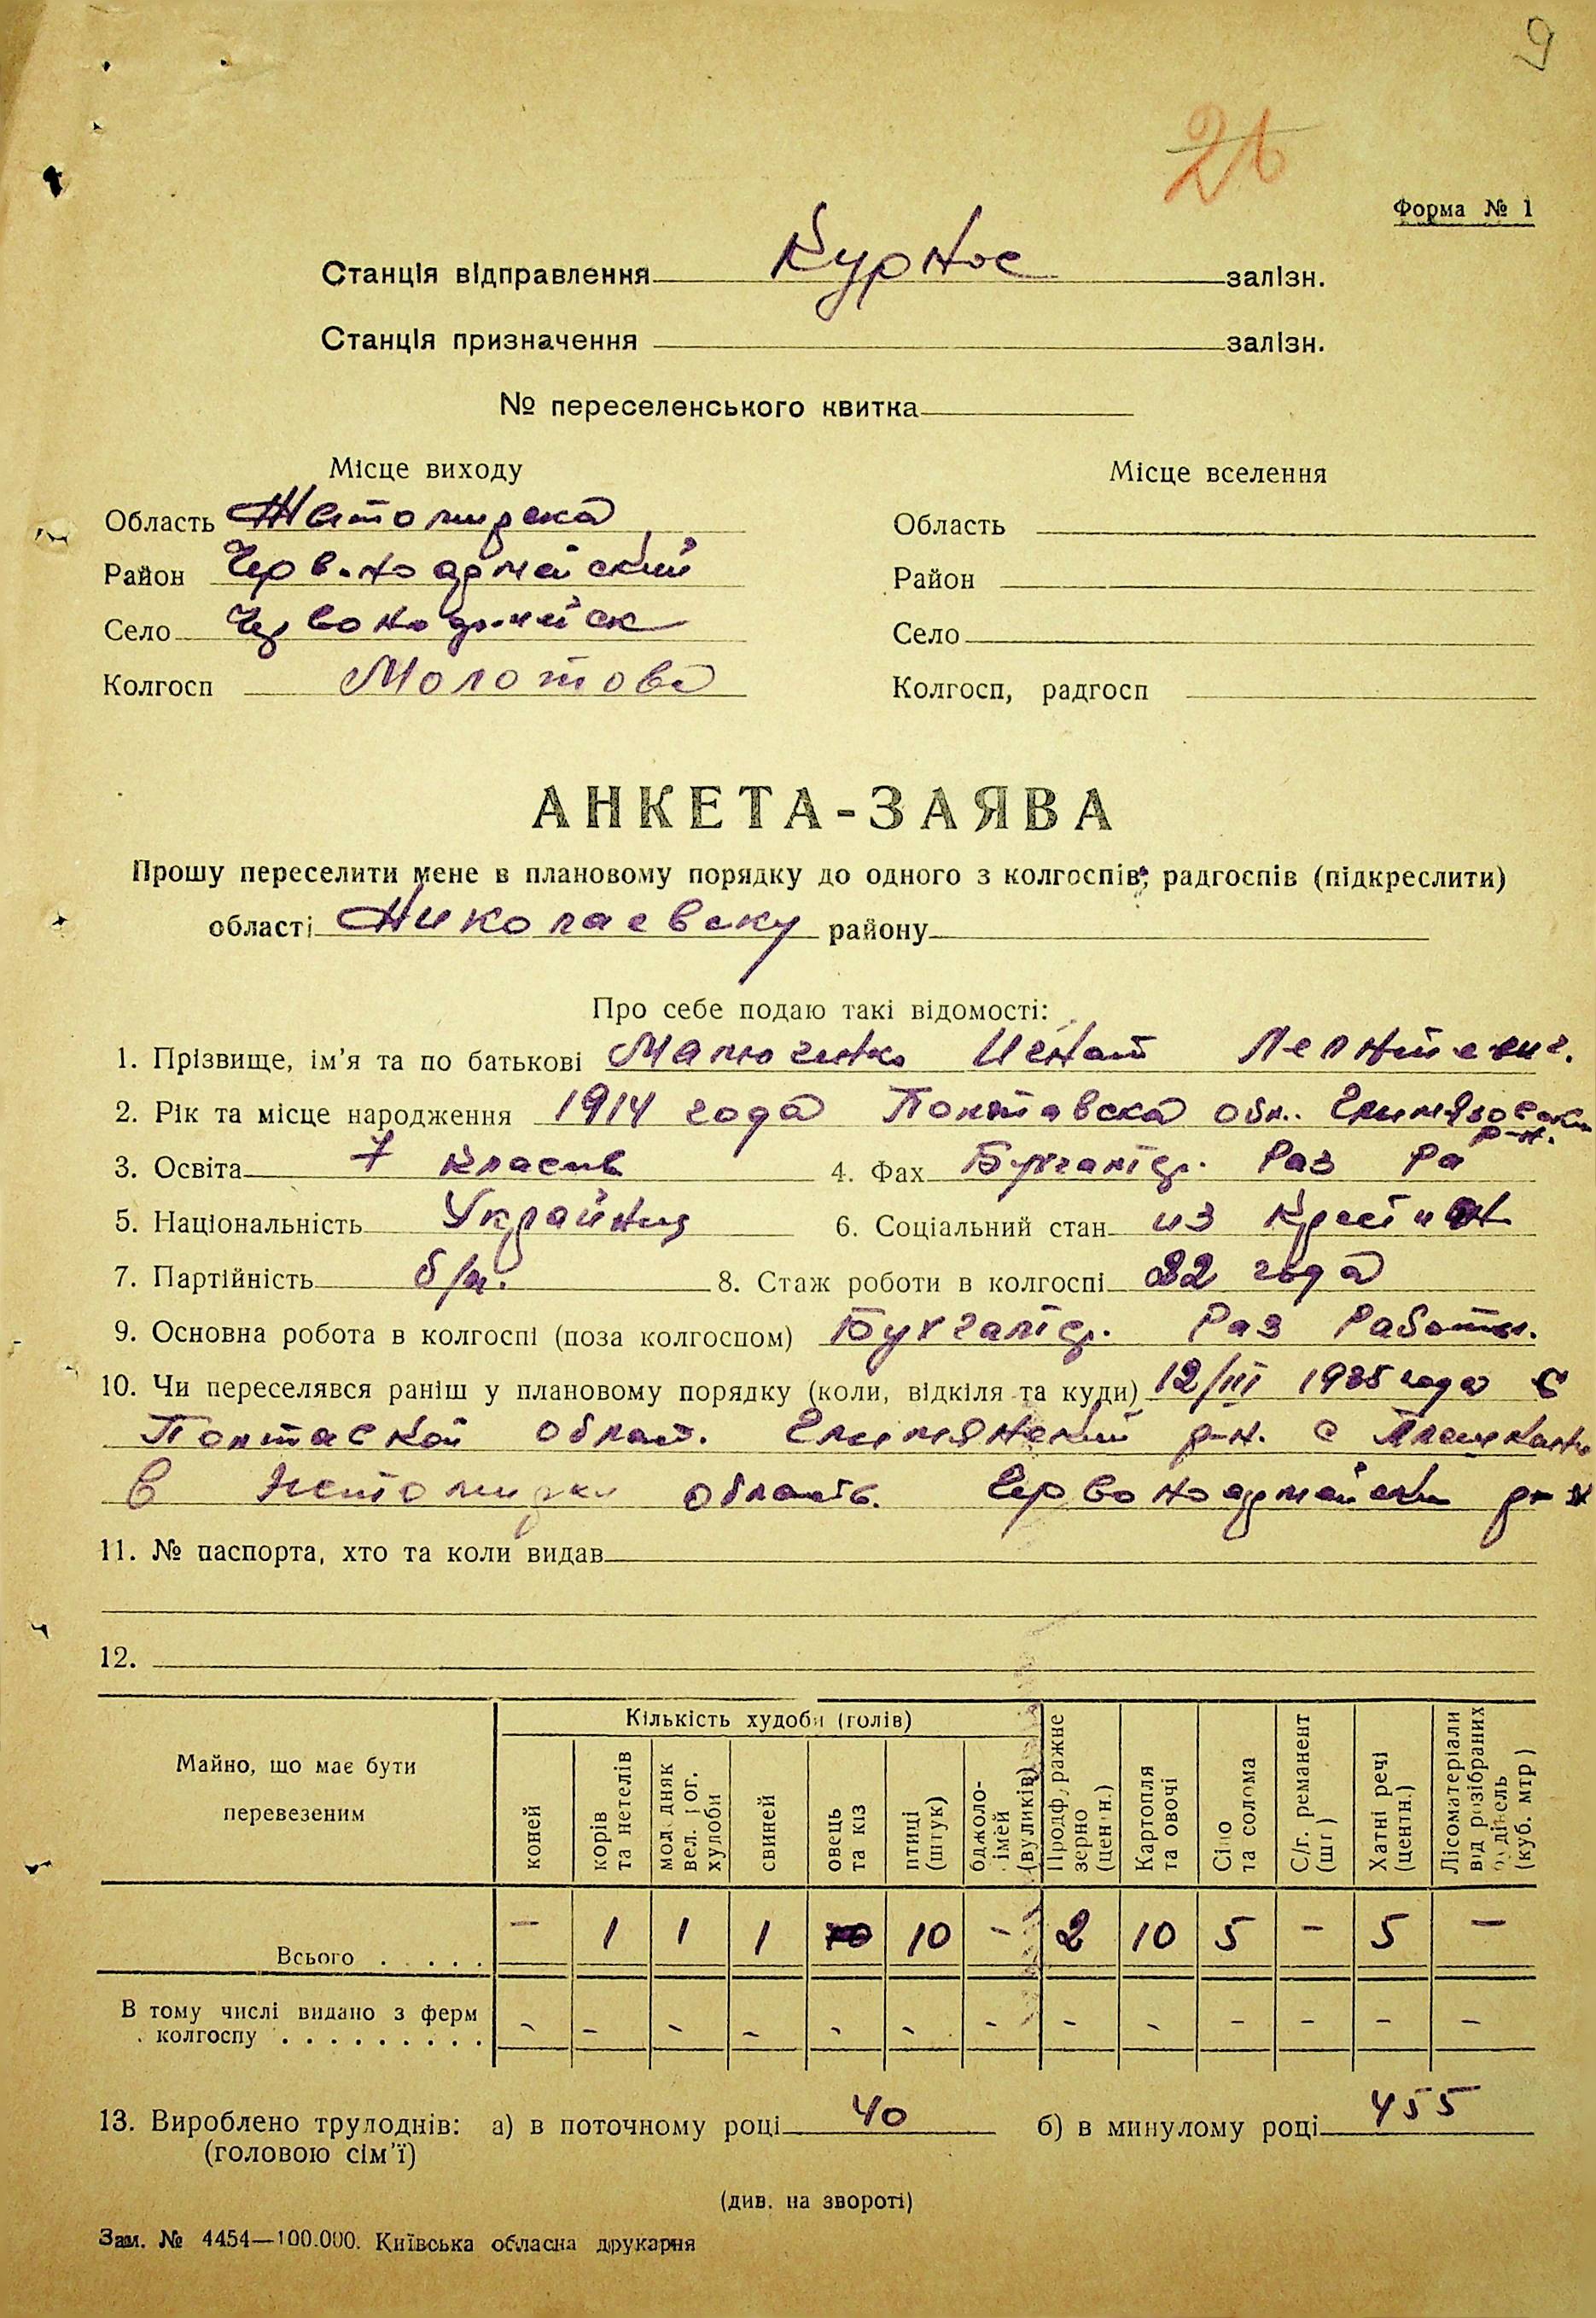 9
26
Форма № 1
Станція відправлення Курное залізн.
Станція призначення залізн.
№ переселенського квитка
Місце виходу
Місце вселення
Область Житомирска
Область
Район Червоноармейский
Район
Село Червоноармейск
Село
Колгосп Молотова
Колгосп, радгосп
АНКЕТА-ЗАЯВА
Прошу переселити мене в плановому порядку до одного з колгоспів, радгоспів (підкреслити)
області Николаевску району
Про себе подаю такі відомості:
1. Прізвище, ім'я та по батькові Малюченко Игнат
2. Рік та місце народження 1914 года Полтавска обл.
р-н.
3. Освіта 7 класив 4. Фах Бухгалтер. Раз Ра
5. Національність 6. Соціальний стан из
7. Партійність б/п. 8. Стаж роботи в колгоспі 22 года
9. Основна робота в колгоспі (поза колгоспом) Бухгалтер. Раз Работы.
10. Чи переселявся раніш у плановому порядку (коли, відкіля та куди) 12/III 1935 года с
Полтаской област. р-н. с
в область. Червоноармейски р-н
11. № паспорта, хто та коли видав
12.
Майно, що має бути перевезеним
Кількість худоби (голів)
коней
корів та нетелів
молодняк вел. рог. худоби
свиней
овець та кіз
птиці (штук)
бджоло-сімей (вуликів)
Продфуражне зерно (центн.)
Картопля та овочі
Сіно та солома
С/г. реманент (шт.)
Хатні речі (центн.)
Лісоматеріали від розібраних будівель (куб. мтр)
Всього . . . . . – 1 1 1 10 - 2 10 5 - 5 –
В тому числі видано з ферм
колгоспу . . . . . . . . . - - - - - - - - - - - - -
13. Вироблено трудоднів: а) в поточному році 40 б) в минулому році 455
(головою сім'ї)
(див. на звороті)
Зам. № 4454—100.000. Київська обласна друкарня